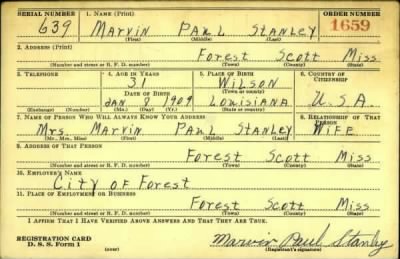 SERIAL NUMBER 1. NAME (Print) ORDER NUMBER
639 MARVIN PAUL STANLEY 1659
(First) (Middle) (Last)
2. ADDRESS (Print)
FOREST SCOTT MISS
(Number and street or R. F. D. number) (Town) (County) (State)
3. TELEPHONE 4. AGE IN YEARS 5. PLACE OF BIRTH 6. COUNTRY OF CITIZENSHIP
31 WILSON
DATE OF BIRTH (Town or county)
JAN 8 1909 LOUISIANA U.S.A.
(Exchange) (Number) (Mo.) (Day) (Yr.) (State or country)
7. NAME OF PERSON WHO WILL ALWAYS KNOW YOUR ADDRESS 8. RELATIONSHIP OF THAT PERSON
MRS. MARVIN PAUL STANLEY WIFE
(Mr., Mrs., Miss) (First) (Middle) (Last)
9. ADDRESS OF THAT PERSON
FOREST SCOTT MISS
(Number and street or R. F. D. number) (Town) (County) (State)
10. EMPLOYER'S NAME
CITY OF FOREST
11. PLACE OF EMPLOYMENT OR BUSINESS
FOREST SCOTT MISS
(Number and street or R. F. D. number) (Town) (County) (State)
I AFFIRM THAT I HAVE VERIFIED ABOVE ANSWERS AND THAT THEY ARE TRUE.
REGISTRATION CARD
D. S. S. Form 1 (over) Marvin Paul Stanley
(Registrant's signature)